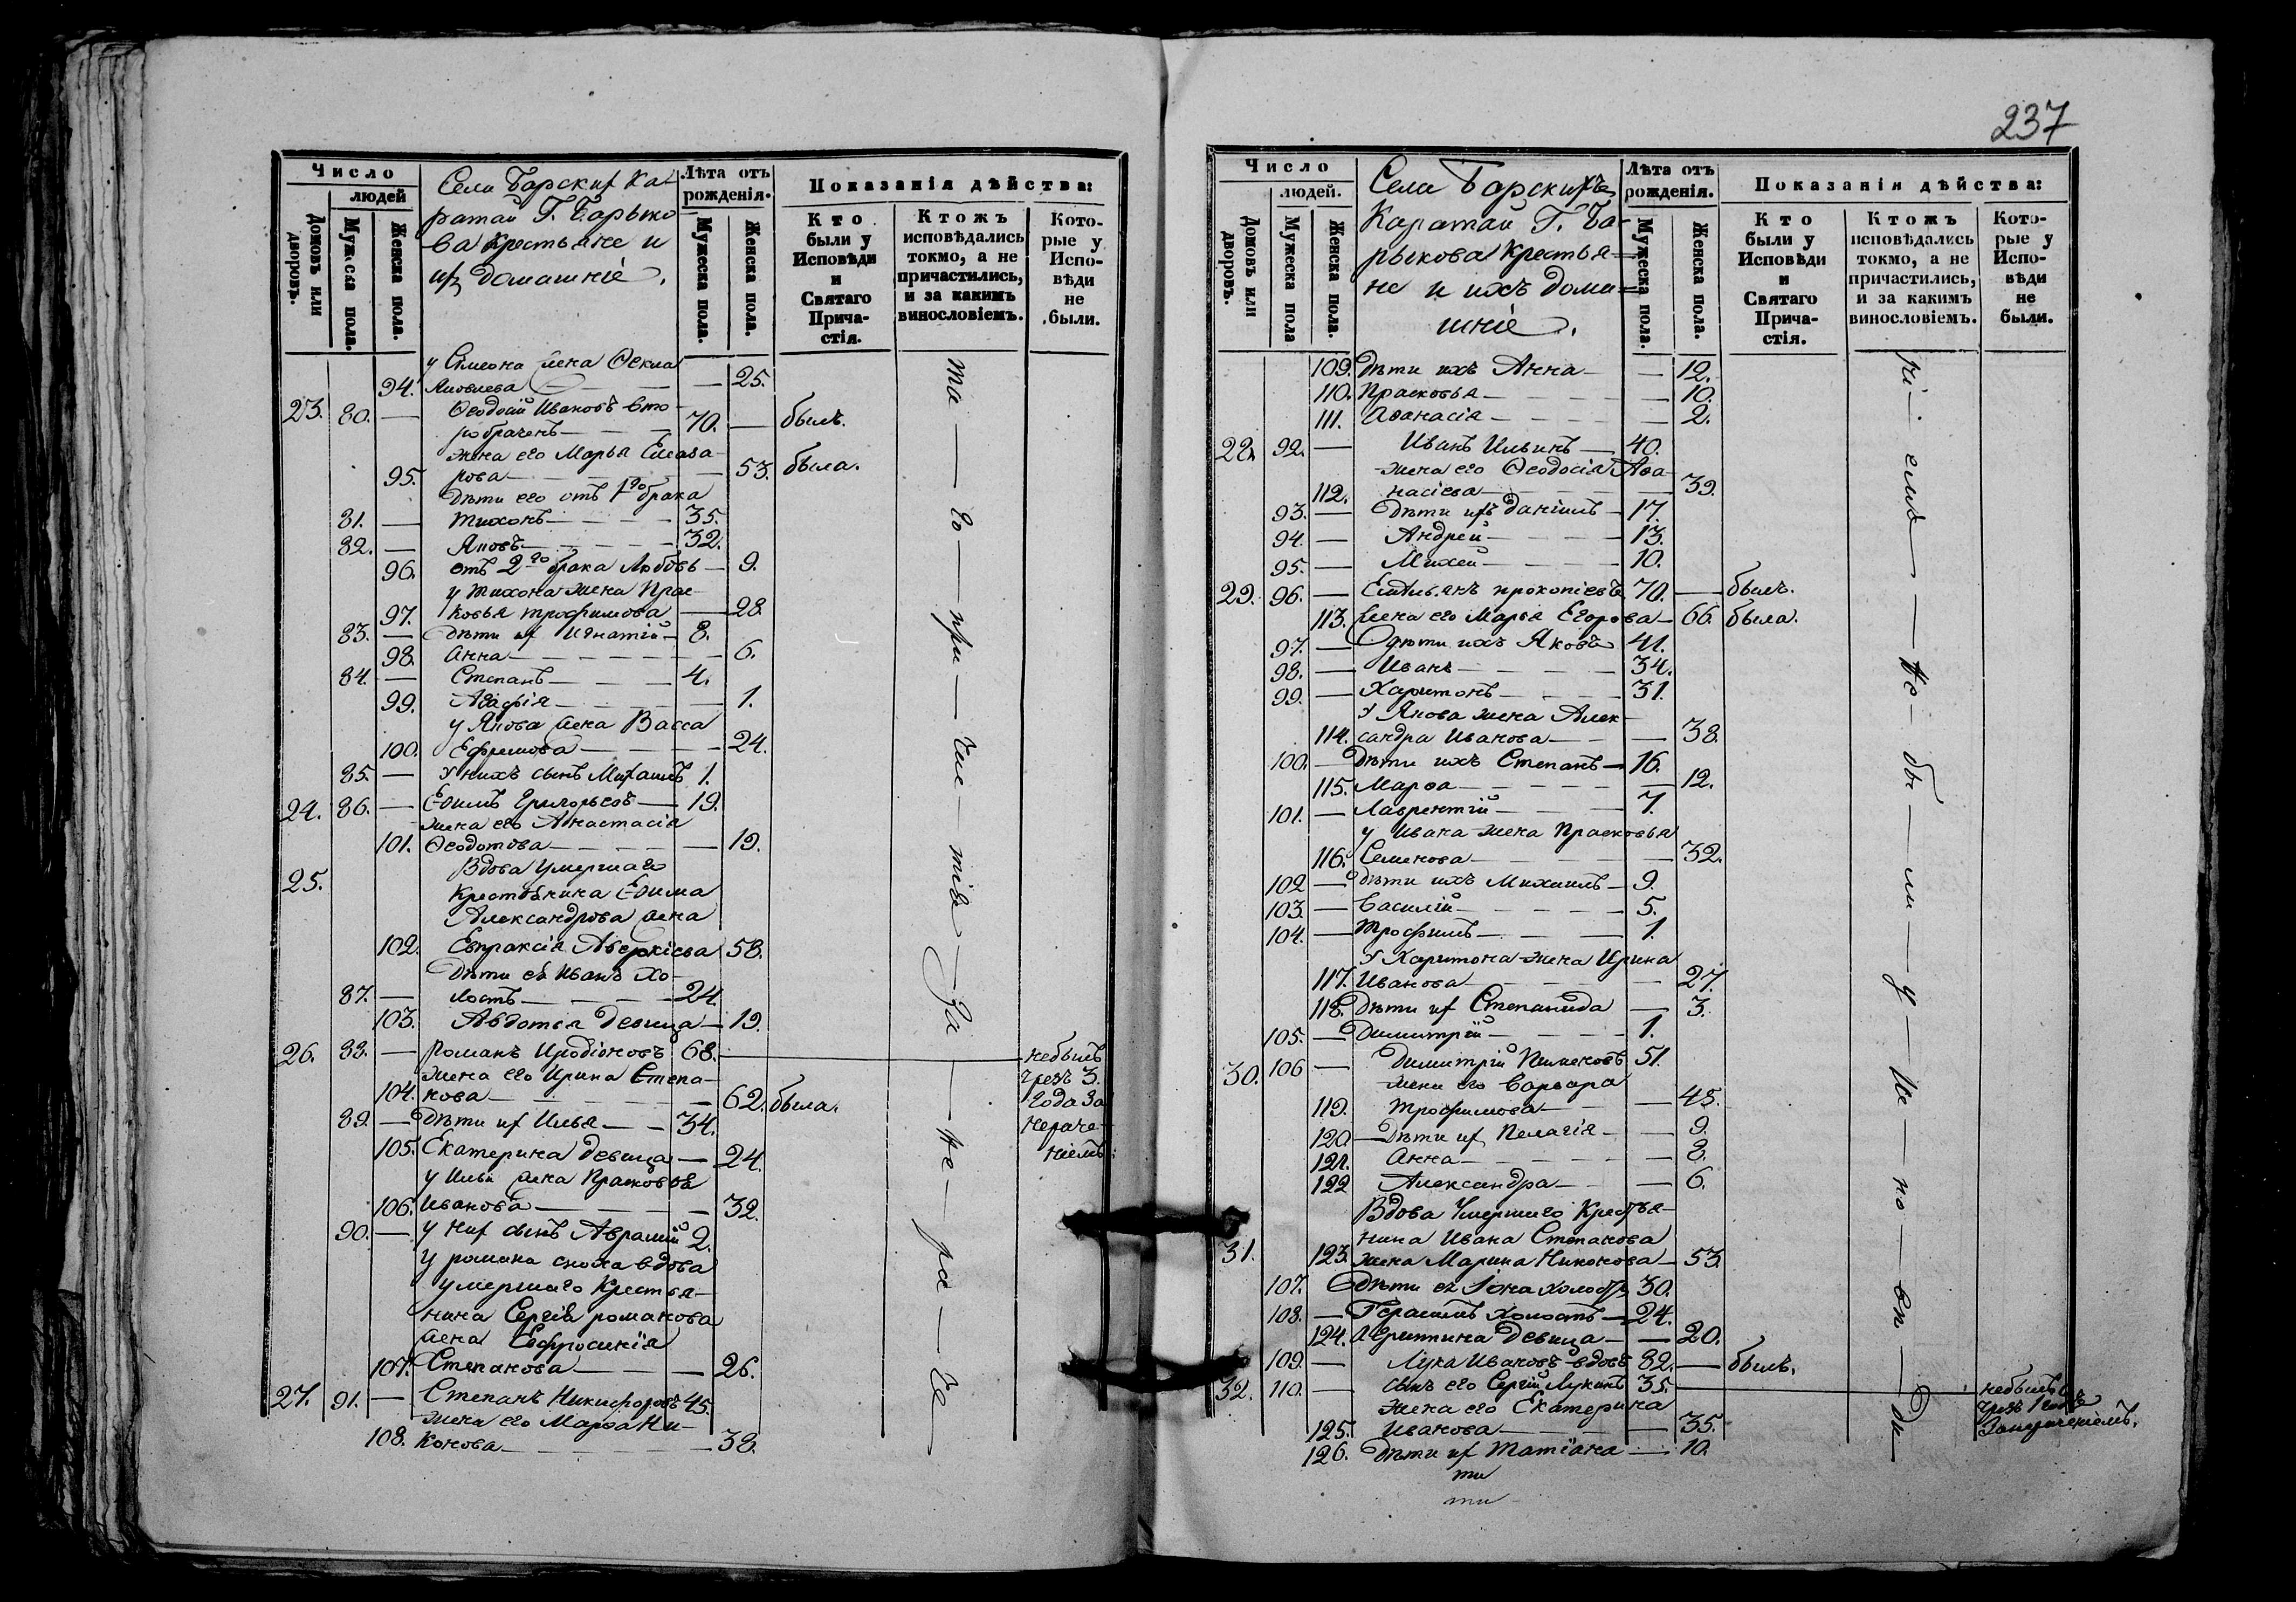 237
Число
людей
Домовъ или дворовъ.
Мужеска пола.
Женска пола.
Села Барских Ка-
ратаи Г. Барыко
ва крестьяне и
их домашніе.
Лѣта отъ рожденія.
Мужеска пола.
Женска пола.
Показанія дѣйства:
Кто были у Исповѣди и Святаго Причастія.
Ктожъ исповѣдались токмо, а не причастились, и за какимъ винословіемъ.
Которые у Исповѣди не были.
у Симеона жена Ѳекла
94. Яковлева — 25.
23. 80. — Ѳеодосій Ивановъ вто
робраченъ — 70. — былъ.
жена его Марья Елеаза-
95. рова — 53. была.
Дѣти его отъ 1го брака
81. — Тихонъ — 35.
82. — Яковъ — 32.
96. отъ 2го брака Любовь — 9.
у Тихона жена Прас-
97. ковья Трофимова — 28.
83. — Дѣти их Игнатій — 8.
98. Анна — 6.
84. — Степанъ — 4.
99. Агафія — 1.
у Якова жена Васса
100. Ефремова — 24.
85. — У нихъ сынъ Михаилъ 1.
24. 86. — Ефимъ Григорьевъ — 19.
жена его Анастасія
101. Ѳеодотова — 19.
25. Вдова умершаго
крестьянина Ефима
Александрова жена
102. Евпраксія Аверкіева 58.
Дѣти ея Иванъ Хо-
87. — лостъ — 24.
103. Авдотья девица — 19.
26. 88. — Романъ Иродіоновъ 68. — небылъ
жена его Ирина Степа- чрезъ 3.
104. нова — 62. была. года за
89. — Дѣти их Илья — 34. нераче-
105. Екатерина девица — 24. ніемъ.
у Ильи жена Прасковья
106. Иванова — 32.
90. — у них сынъ Аврамій 2.
у Романа сноха вдова
умершаго крестья-
нина Сергѣя Романова
жена Евфросинія
107. Степанова — 26.
27. 91. — Степанъ Никифоровъ 45.
жена его Марѳа Ни-
108. конова — 38.
та — го — при — час — тія — за — не — ра — че —
Число
людей.
Домовъ или дворовъ.
Мужеска пола
Женска пола.
Села Барскихъ
Каратаи Г. Ба-
рыкова крестья-
не и ихъ дома=
шніе.
Лѣта отъ рожденія.
Мужеска пола.
Женска пола.
Показанія дѣйства:
Кто были у Исповѣди и Святаго Причастія.
Ктожъ исповѣдались токмо, а не причастились, и за какимъ винословіемъ.
Которые у Исповѣди не были.
109. Дѣти ихъ Анна — 12.
110. Прасковья — 10.
111. Аѳанасія — 2.
28. 92. — Иванъ Ильинъ — 40.
жена его Ѳеодосія Аѳа-
112. насіева — 39.
93. — Дѣти ихъ Даніилъ — 17.
94. — Андрей — 13.
95. — Михей — 10.
29. 96. — Емельянъ Прокопіевъ 70. — былъ.
113. жена его Марья Егорова — 66. была.
97. — Дѣти ихъ Яковъ 41.
98. — Иванъ — 34.
99. — Харитонъ — 31.
У Якова жена Алек-
114. сандра Иванова — 38.
100. — Дѣти ихъ Степанъ — 16.
115. Марѳа — 12.
101. — Лаврентій — 7.
у Ивана жена Прасковья
116. Семенова — 32.
102 — Дѣти ихъ Михаилъ — 9.
103. — Василій — 5.
104. — Трофимъ — 1.
У Харитона жена Ирина
117. Иванова — 27.
118. Дѣти их Степанида — 3.
105. — Димитрій — 1.
30. 106 — Димитрій Пименовъ 51.
жена его Варвара
119. Трофимова — 45.
120 — Дѣти их Пелагія — 9.
121. Анна — 8.
122 Александра — 6.
Вдова Умершаго Крестья-
нина Ивана Степанова
31. 123. жена Марина Никонова — 53.
107. Дѣти ея Іона холостъ 30.
108. — Герасимъ Холостъ — 24.
124. Агриппина Девица — 20.
109. — Лука Ивановъ вдовъ 82. — былъ.
32. 110. — сынъ его Сергій Лукинъ 35. — небылъ
жена его Екатерина чрезъ 1 годъ
125. Иванова — 35. Занераченіемъ.
126. Дѣти их Татіана — 10.
ти
ти
ні — емъ — не — бы — ли — у — Ис — по — вѣ — ди